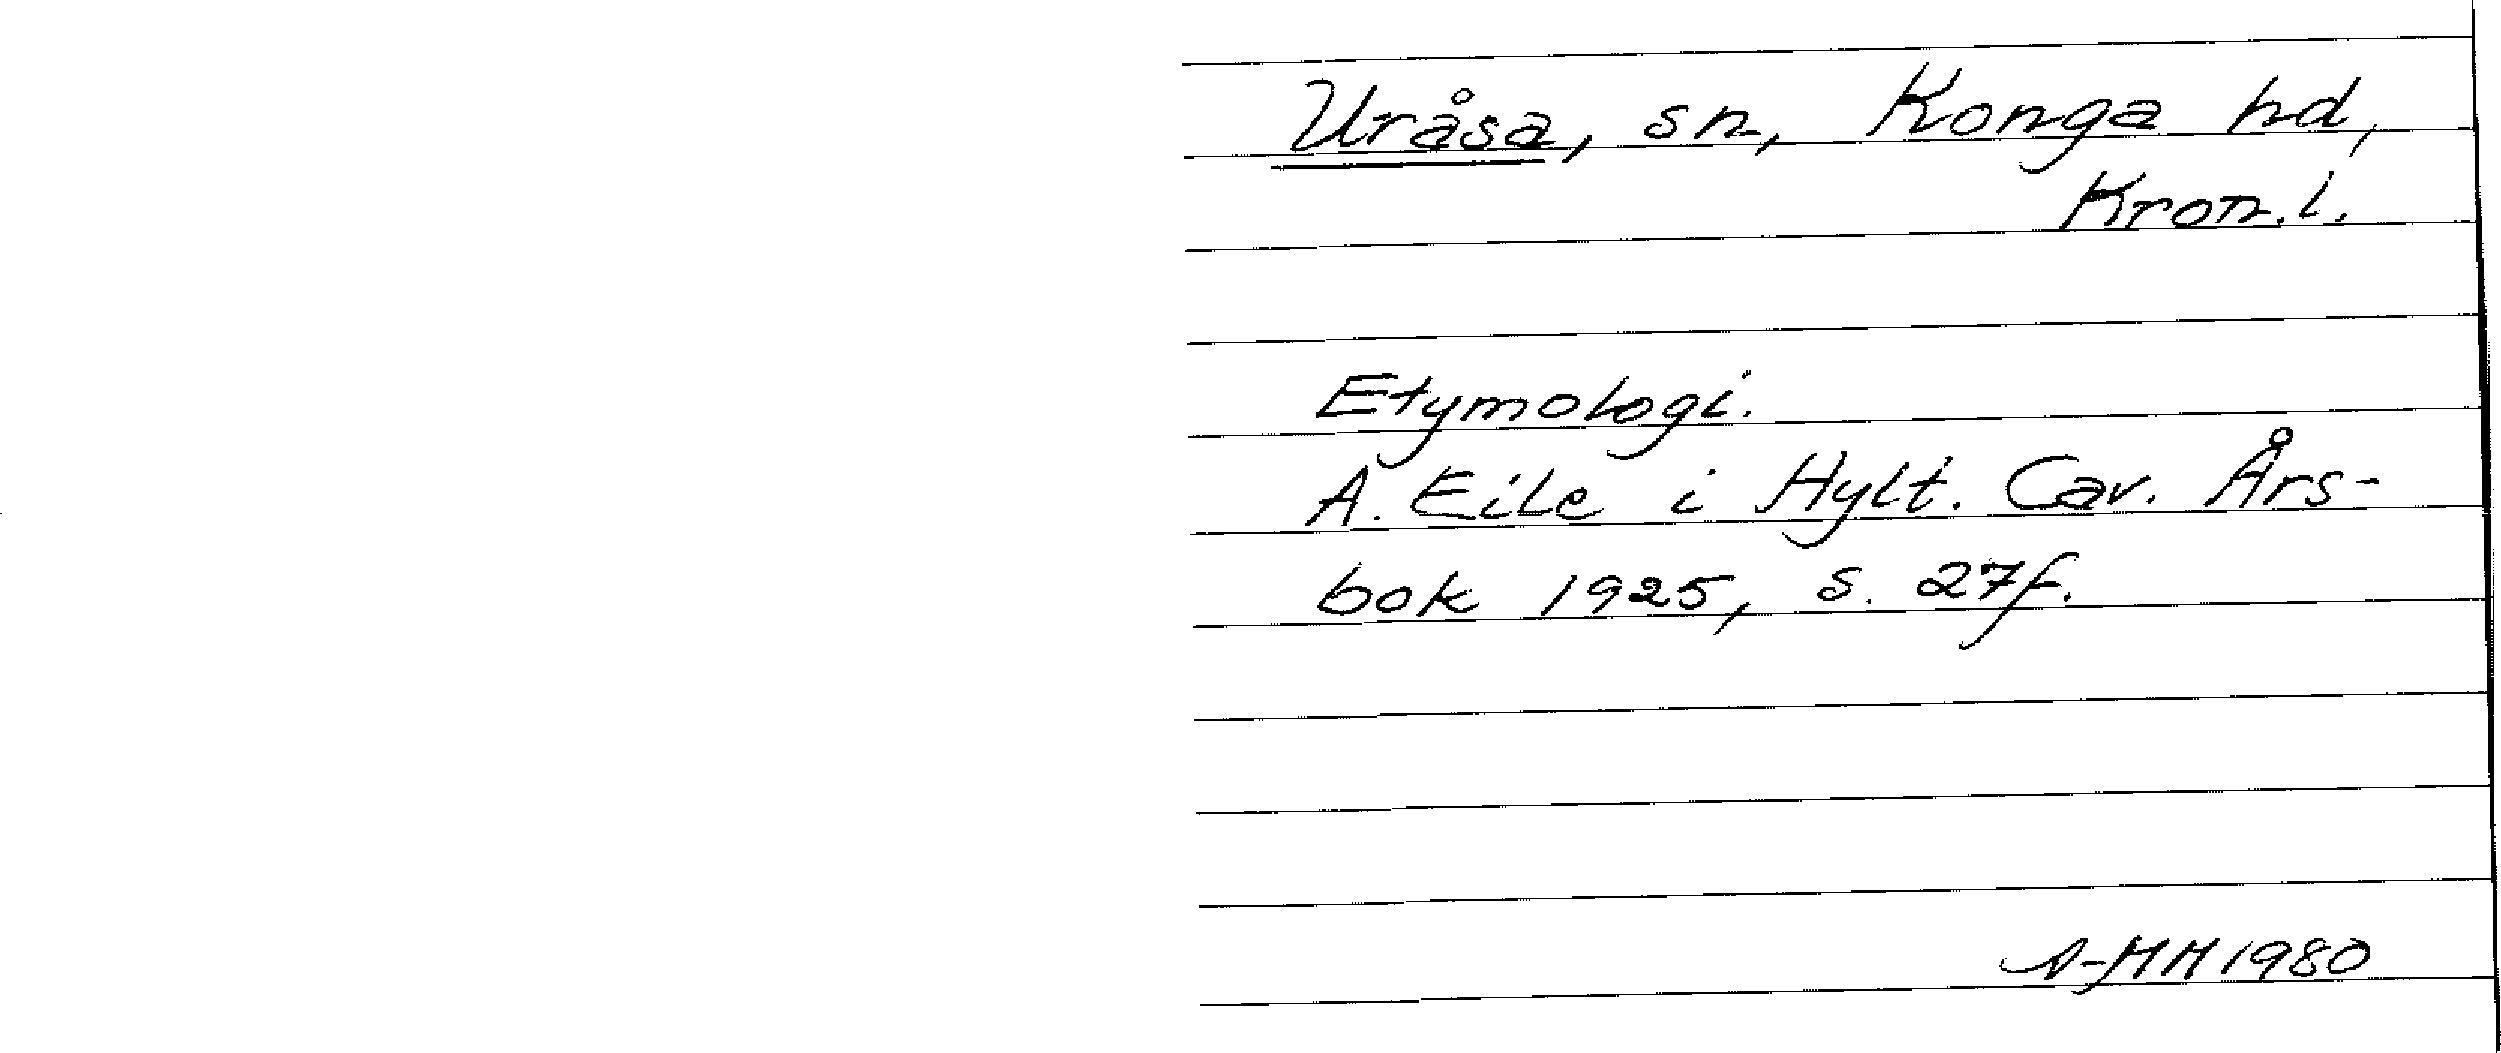 Uråsa, sn, Konga hd,
Kron. l.
Etymologi.
A. Eile i Hylt. Cav. Års-
bok 1925, s. 27f.
A-MH 1980